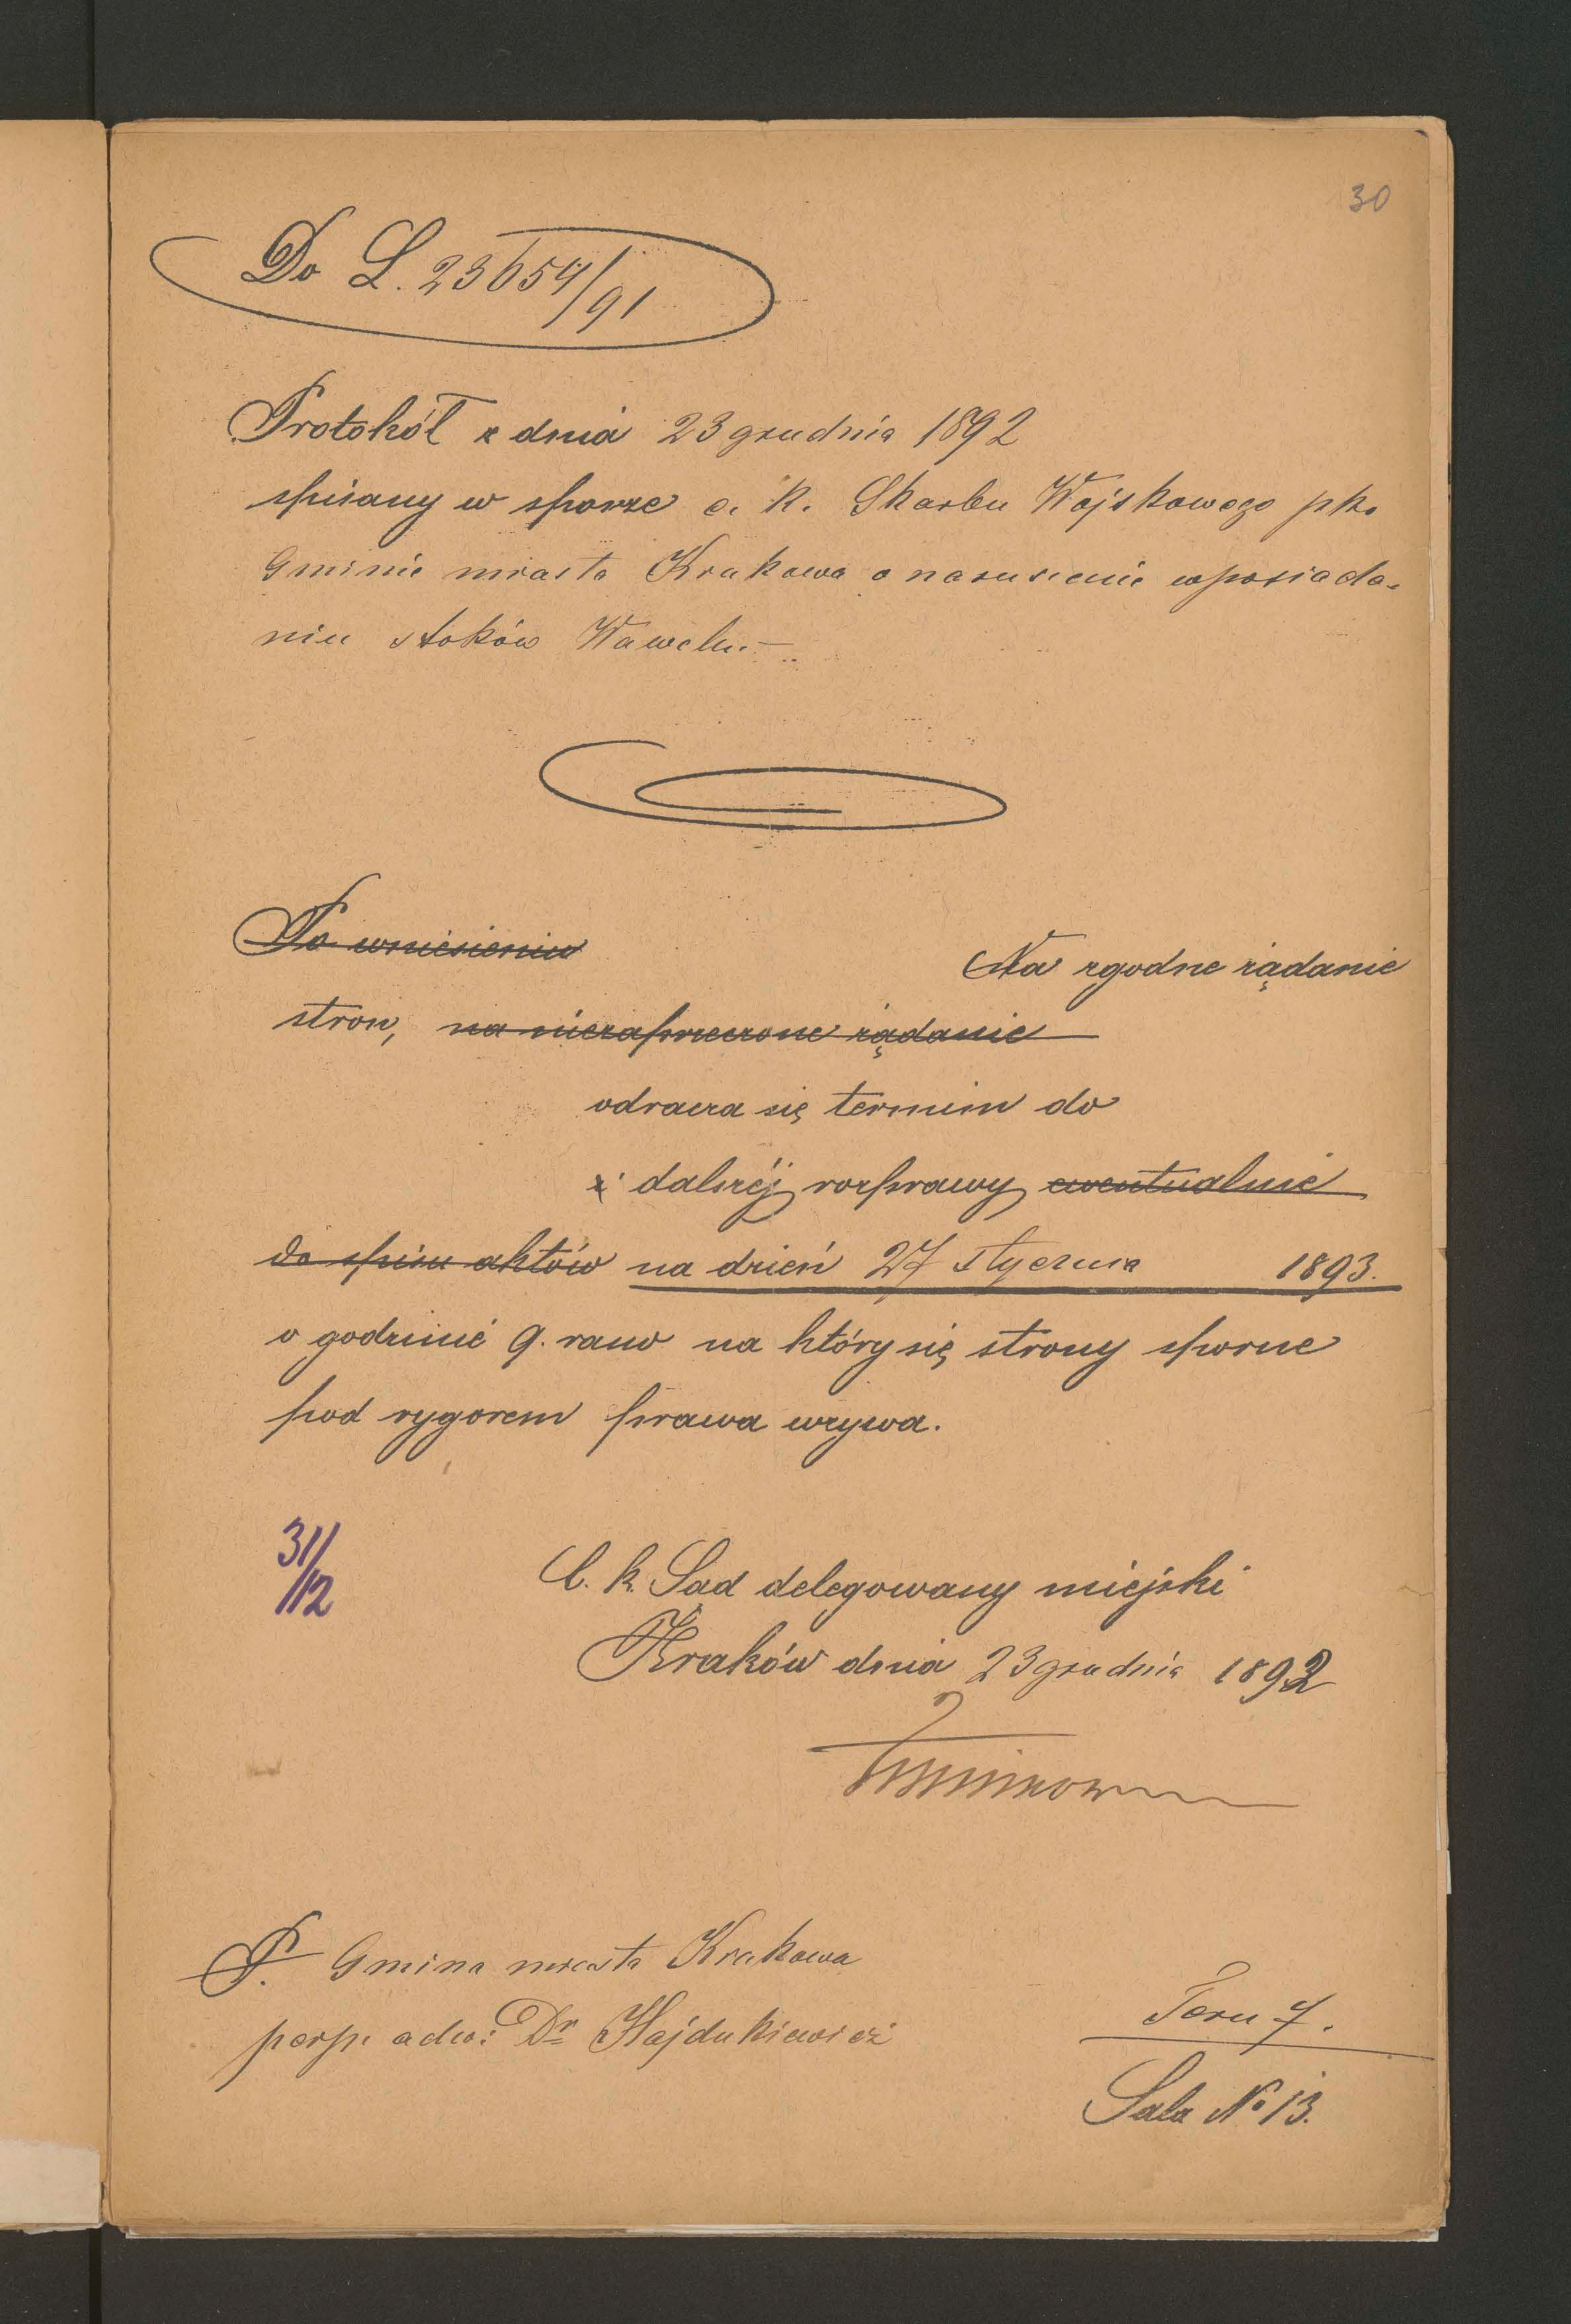 30
Do L. 23654/91
Protokół z dnia 23 grudnia 1892
spisany w sporze c. k. Skarbu Wojskowego pko
Gminie miasta Krakowa o naruszenie w posiada-
niu stoków Wawelu.–
Po wniesieniu
Na zgodne żądanie
stron, na niezaprzeczone żądanie
odracza się termin do
dalszéj rozprawy ewentualnie
do spisu aktów na dzień 27 stycznia 1893.
o godzinie 9. rano na który się strony sporne
pod rygorem prawa wzywa.
31/12
C. k. Sąd delegowany miejski
Kraków dnia 23 grudnia 1892
P. Gmina miasta Krakowa
per p. adw: Dr Hajdukiewicz
7.
Sala No 13.